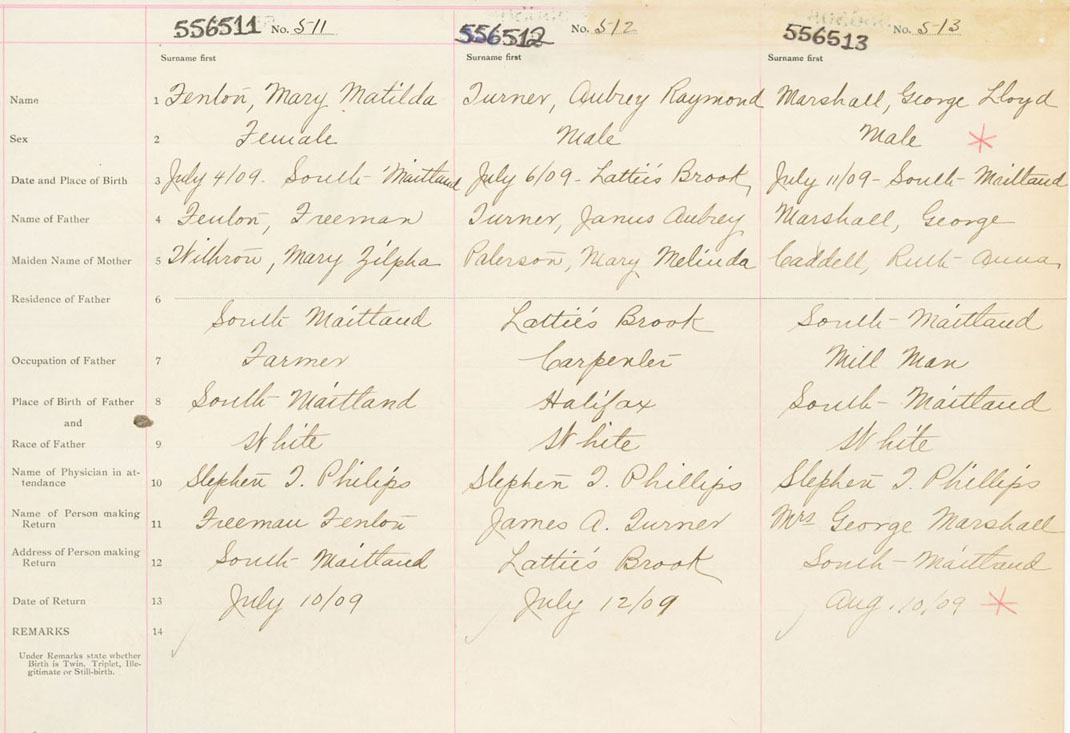 556511 No. 511 556512 No. 512 556513 No. 513
Surname first Surname first Surname first
Name 1 Fenton, Mary Matilda Turner, Aubrey Raymond Marshall, George Lloyd
Sex 2 Female Male Male
Date and Place of Birth 3 July 4/09. South Maitland July 6/09 - Lattie's Brook July 11/09 - South Maitland
Name of Father 4 Fenton, Freeman Turner, James Aubrey Marshall, George
Maiden Name of Mother 5 Withrow, Mary Zilpha Paterson, Mary Melinda Caddell, Ruth Anna
Residence of Father 6
South Maitland Lattie's Brook South - Maitland
Occupation of Father 7 Farmer Carpenter Mill Man
Place of Birth of Father 8 South Maitland Halifax South - Maitland
and
Race of Father 9 White White White
Name of Physician in at-
tendance 10 Stephen T. Philips Stephen T. Phillips Stephen T. Phillips
Name of Person making
Return 11 Freeman Fenton James A. Turner Mrs George Marshall
Address of Person making
Return 12 South Maitland Lattie's Brook South - Maitland
Date of Return 13 July 10/09 July 12/09 Aug. 10/09
REMARKS 14
Under Remarks state whether
Birth is Twin, Triplet, Ille-
gitimate or Still-birth.